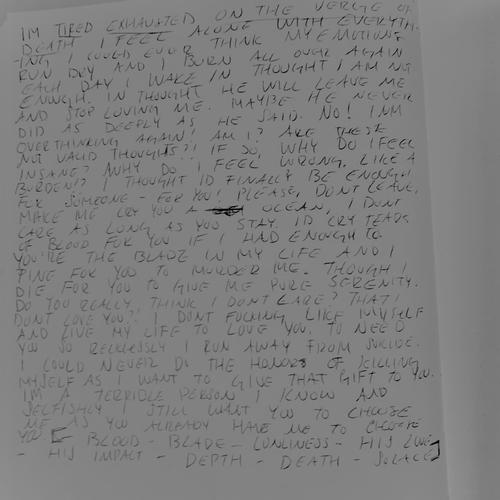 IM TIRED EXHAUSTED ON THE VERGE OF
DEATH I FEEL ALONE WITH EVERYTH-
ING I COULD EVER THINK MY EMOTIONS
RUN DRY AND I BURN ALL OVER AGAIN
EACH DAY I WAKE IN THOUGHT I AM NO
ENOUGH. IN THOUGHT HE WILL LEAVE ME
AND STOP LOVING ME. MAYBE HE NEVER
DID AS DEEPLY AS HE SAID. NO! I'M
OVERTHINKING AGAIN! AM I? ARE THESE
NOT VALID THOUGHTS?! IF SO, WHY DO I FEEL
INSANE? WHY DO I FEEL WRONG, LIKE A
BURDEN!? I THOUGHT ID FINALLY BE ENOUGH
FOR SOMEONE - FOR YOU! PLEASE, DONT LEAVE,
MAKE ME CRY YOU A OCEAN, I DONT
CARE AS LONG AS YOU STAY. ID CRY TEARS
OF BLOOD FOR YOU IF I HAD ENOUGH TO
YOU'RE THE BLADE IN MY LIFE AND I
PINE FOR YOU TO MURDER ME. THOUGH I
DIE FOR YOU TO GIVE ME PURE SERENITY.
DO YOU REALLY THINK I DONT CARE? THAT I
DONT LOVE YOU?! I DONT FUCKING LIKE MYSELF
AND LIVE MY LIFE TO LOVE YOU. TO NEED
YOU SO RECKLESSLY I RUN AWAY FROM SUICIDE.
I COULD NEVER DO THE HONORS OF KILLING
MYSELF AS I WANT TO GIVE THAT GIFT TO YOU.
IM A TERRIBLE PERSON I KNOW AND
SELFISHLY I STILL WANT YOU TO CHOOSE
ME AS YOU ALREADY HAVE ME TO CHOOSE
YOU. [ BLOOD - BLADE - LONLINESS - HIS LOVE
- HIS IMPACT - DEPTH - DEATH - SOLACE]